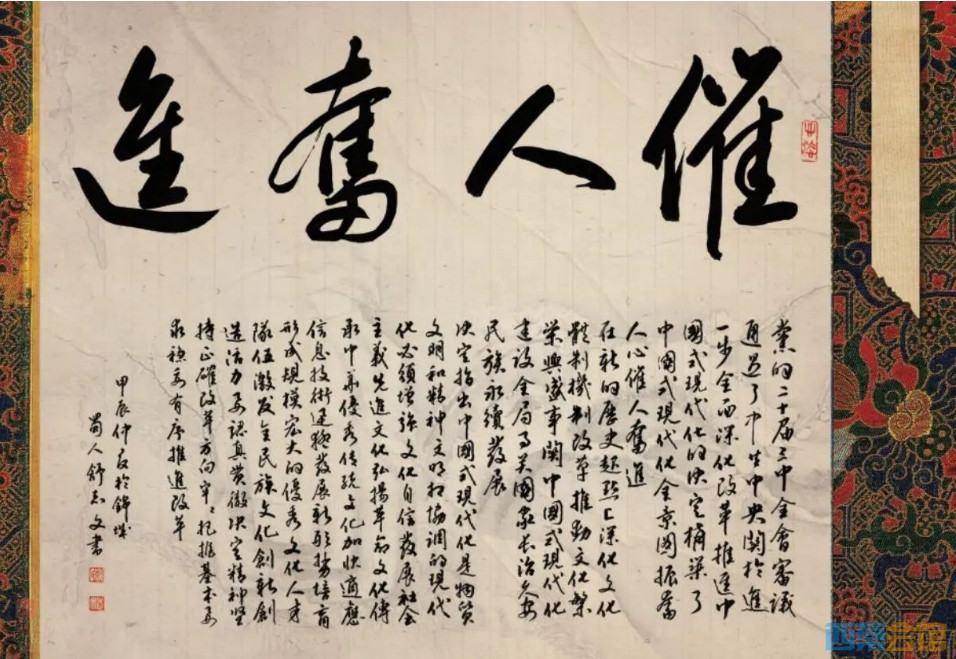 催人奮進
黨的二十届三中全會審議
通過了中共中央關於進
一步全面深化改革推進中
國式現代化的決定描繪了
中國式現代化全景圖振奮
人心催人奮進
在新的歷史起點上深化文化
體制機制改革推動文化繁
榮興盛事關中國式現代化
建設全局事关國家長治久安
民族永續發展
決定指出中國式現代化是物質
文明和精神文明相協調的現代
化必須增強文化自信發展社會
主義先進文化弘揚革命文化傳
承中華優秀傳統文化加快適應
信息技術迅猛發展新形勢培育
形成規模宏大的優秀文化人才
隊伍激發全民族文化創新創
造活力要認真貫徹決定精神堅
持正確改革方向牢々把握基本要
求穩妥有序推進改革
甲辰仲夏於錦城
蜀人舒志文書
会馆